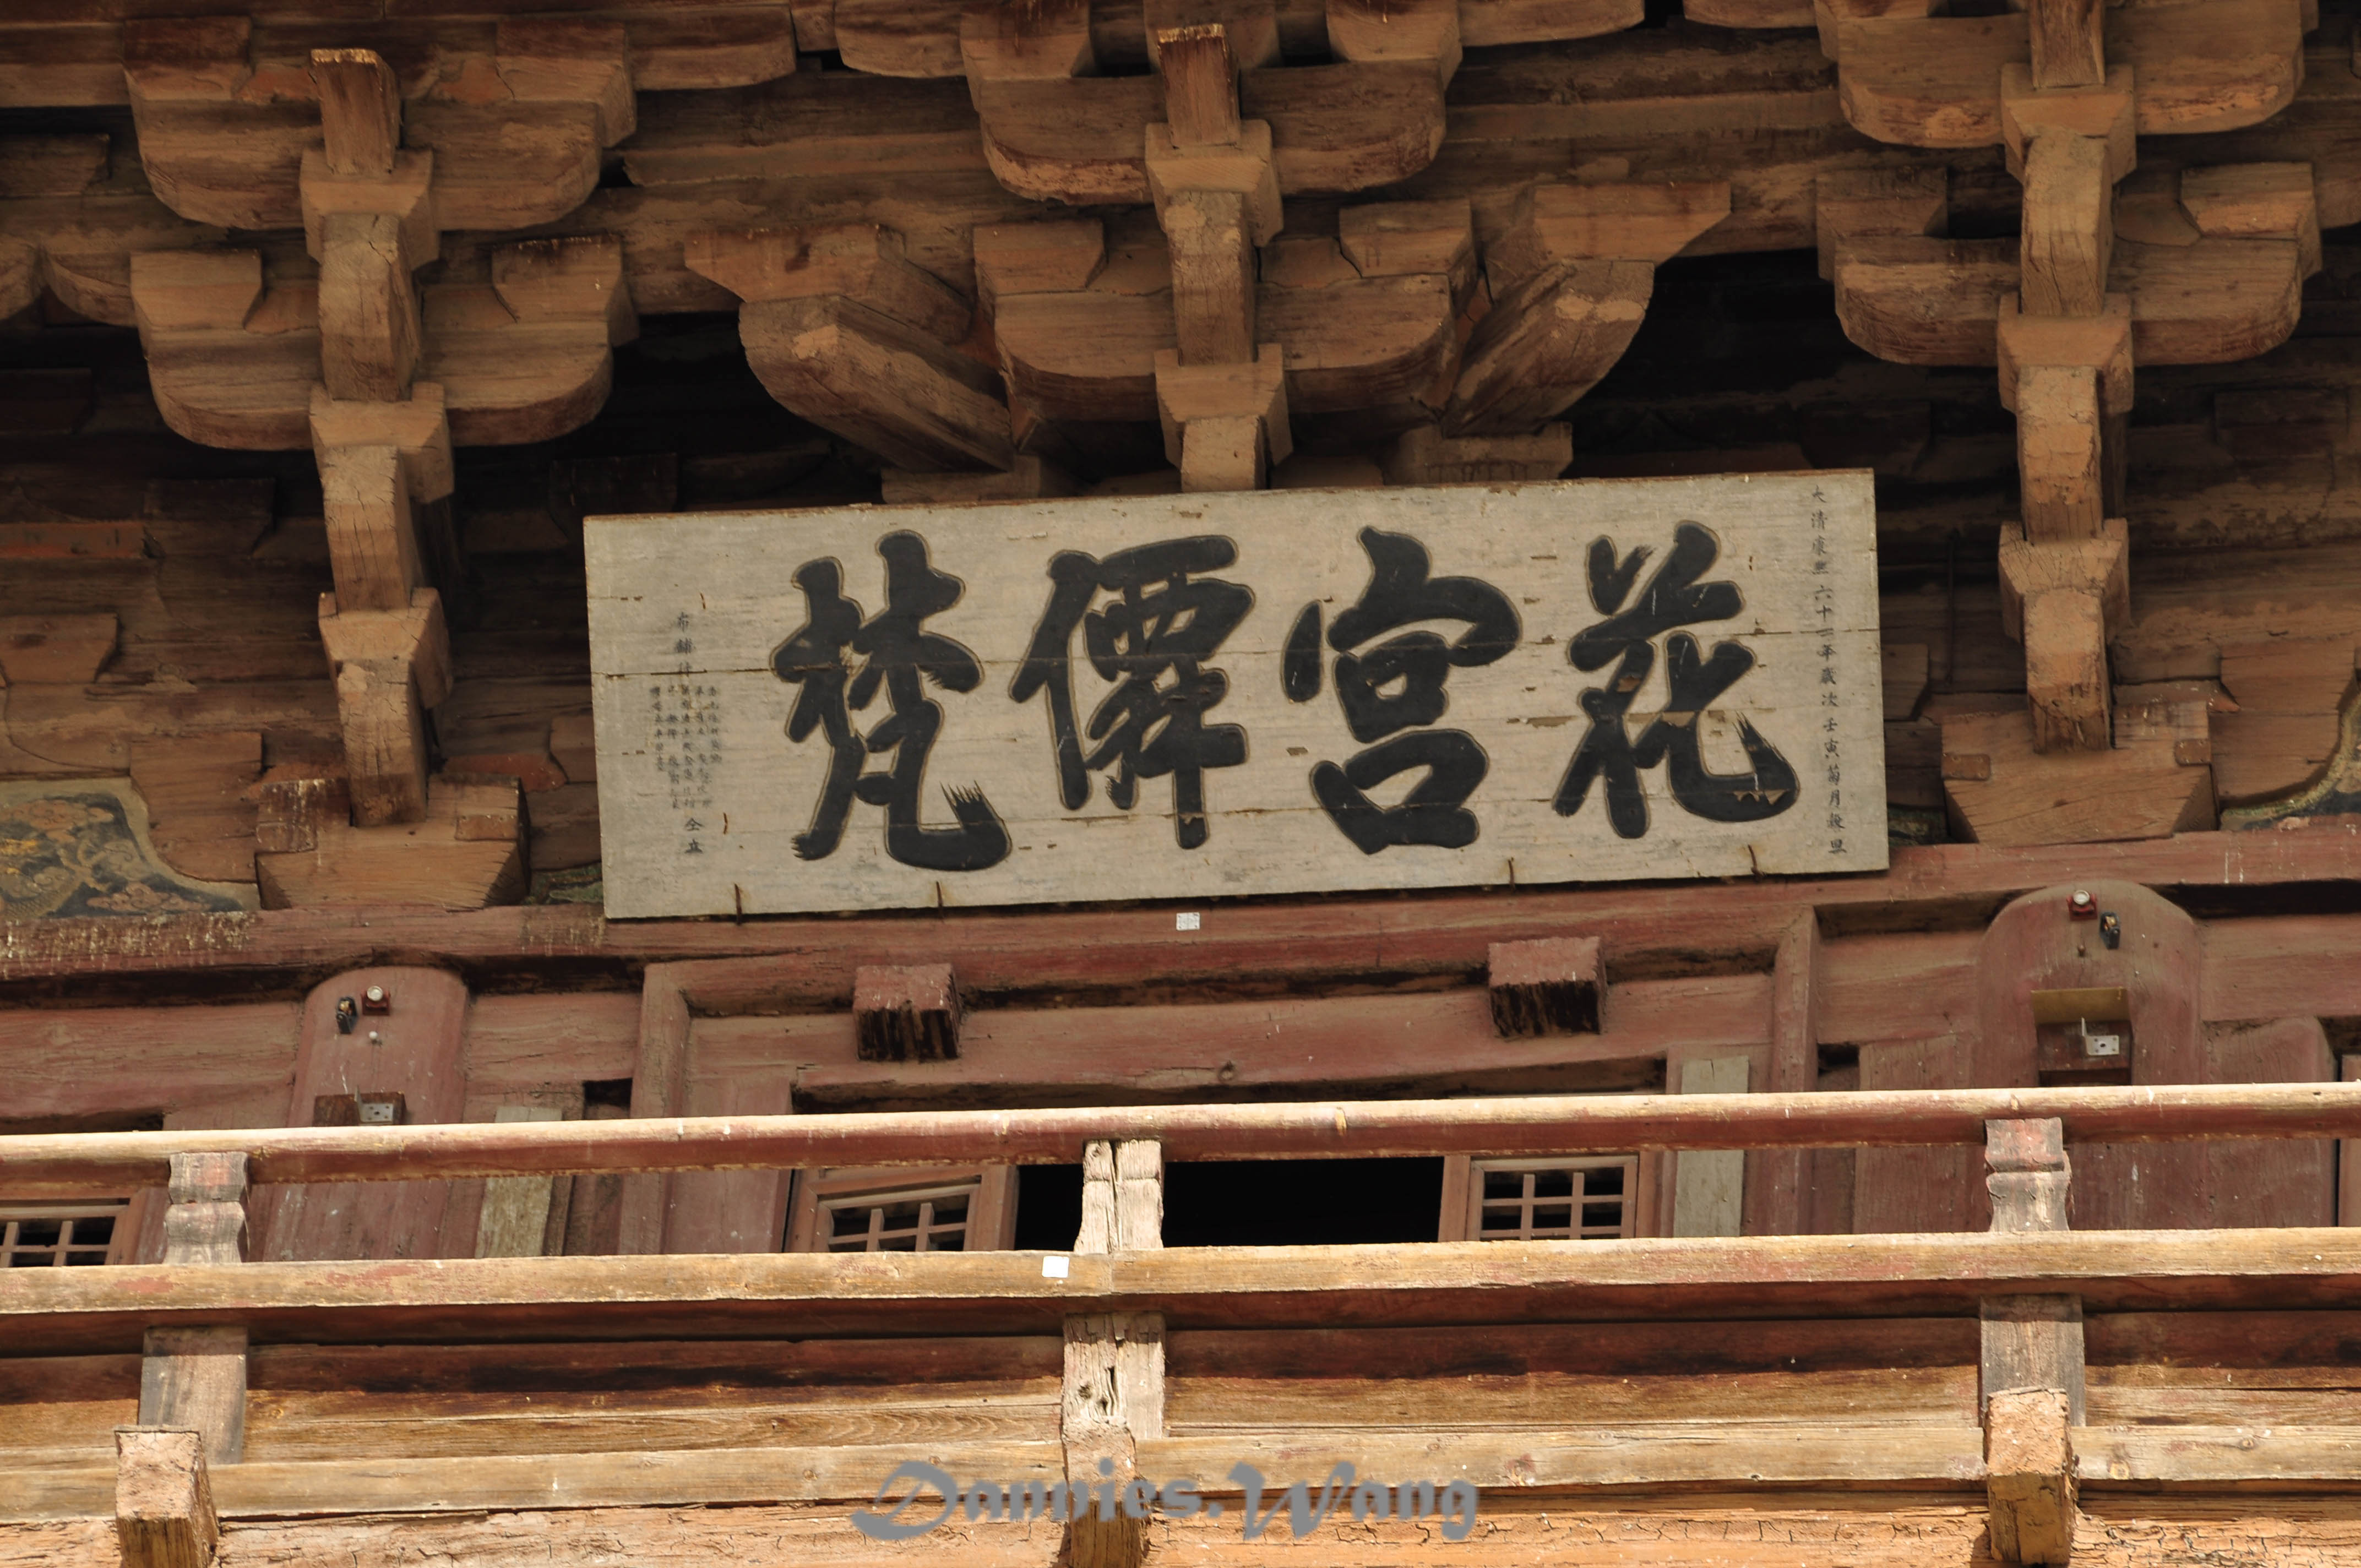 大清康熙六十一年歲次壬寅菊月穀旦
花宮僊梵
布鋪社
仝立
Dannies.Wang